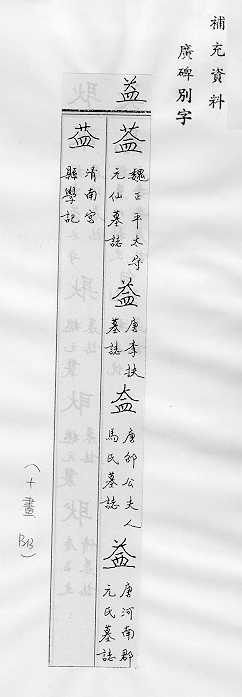 補充資料
廣碑別字
益
葢 魏正平太守元仙墓誌
益 唐李扶墓誌
唐邠公夫人馬氏墓誌
益 唐河南郡元氏墓誌
清南宮縣學記
(十畫 BB)